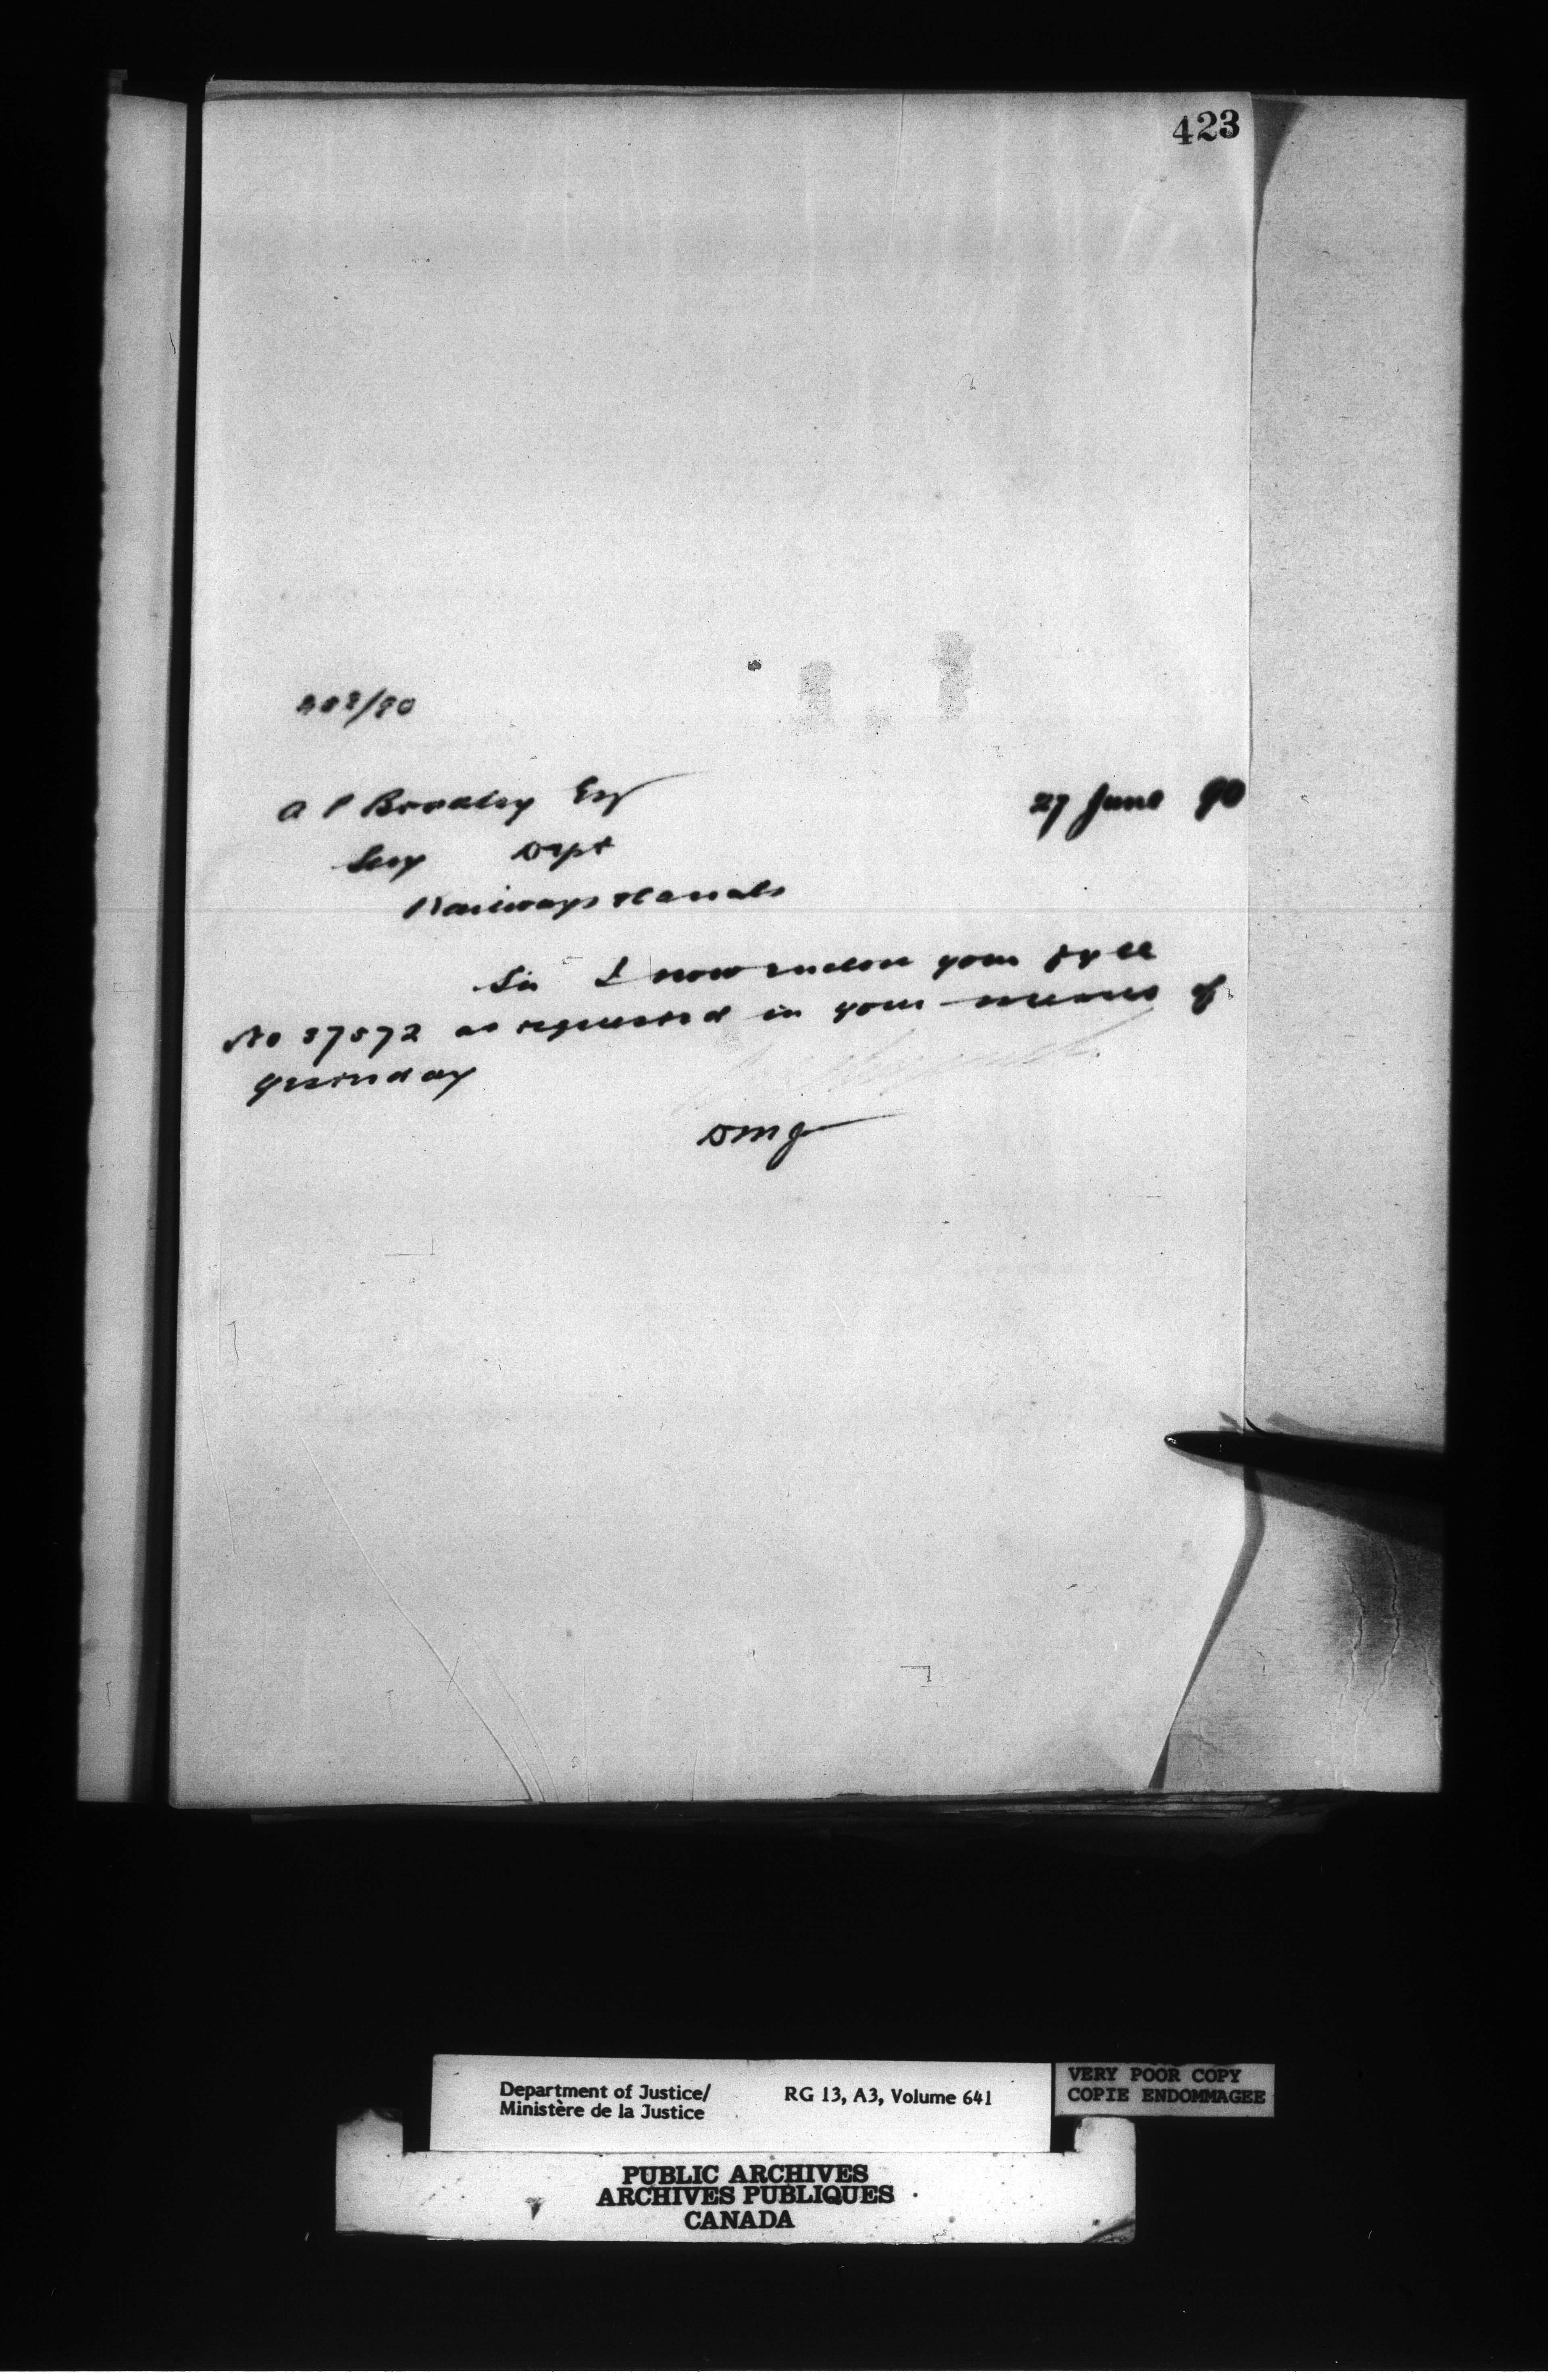 423
/90
A P Bradley Esq
27 June 90
Secy Dept
Railways & Canals
Sir I now enclose your fyle
No 37572 as requested in your memo of
yesterday
DMJ
Department of Justice/
Ministère de la Justice
RG 13, A3, Volume 641
VERY POOR COPY
COPIE ENDOMMAGEE
PUBLIC ARCHIVES
ARCHIVES PUBLIQUES
CANADA